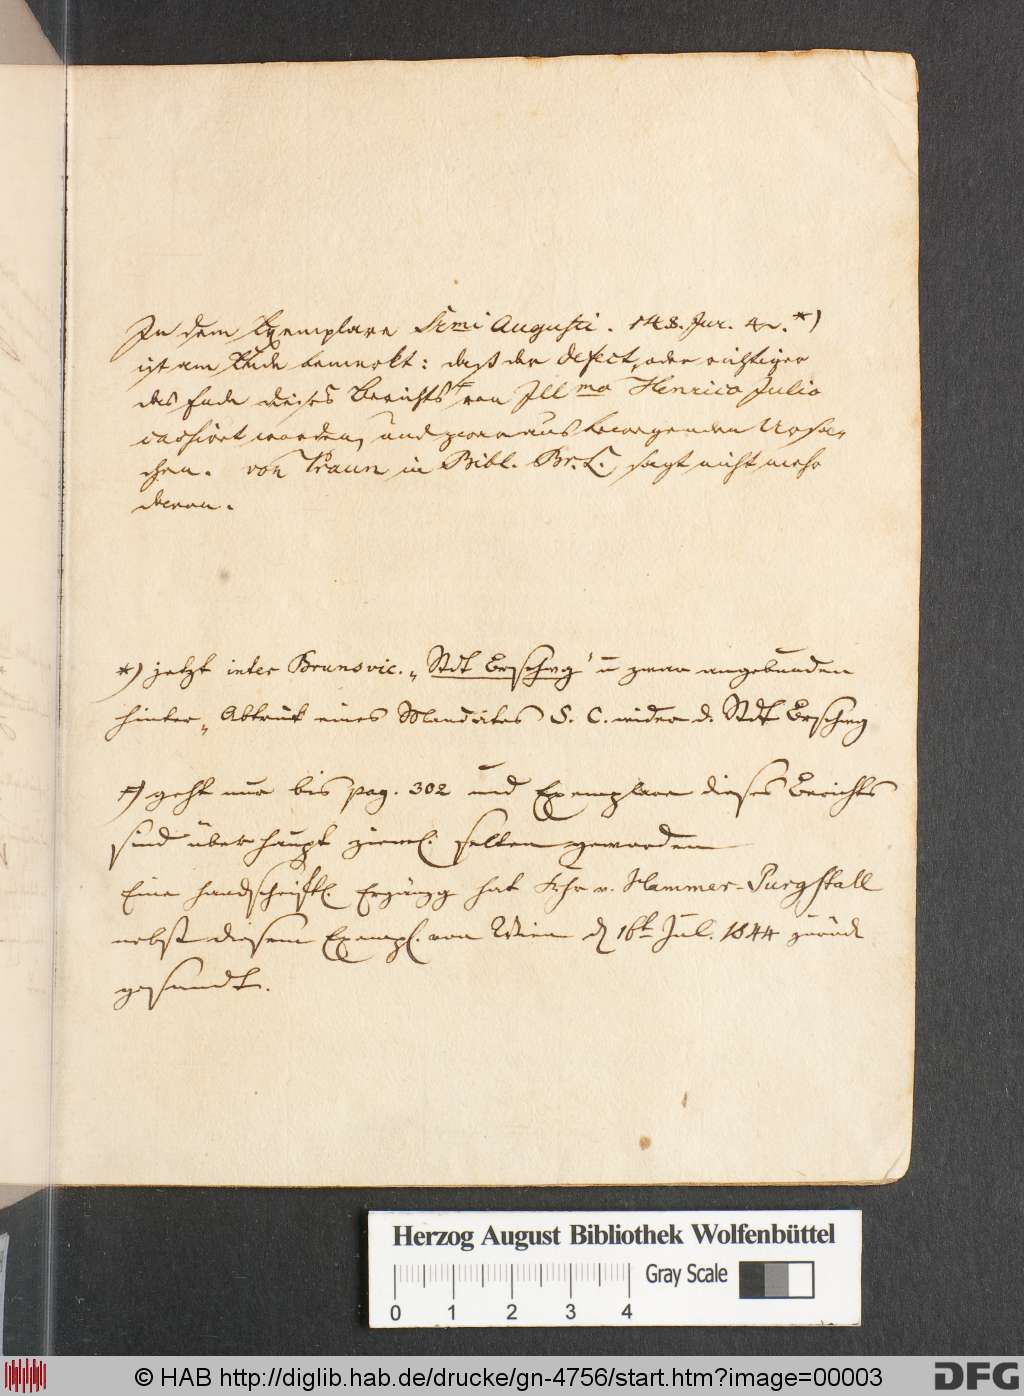 In dem Exemplare Srmi Augusti. 148. Jur. 4to. *)
ist am Ende bemerkt: daß der Defect, oder richtiger
das Ende dieses Berichts †) von Illmo Henrico Julio
cassiret worden, und zwar aus bewegenden Ursa-
chen. von Praun in Bibl. Br. L. sagt nicht mehr
davon.
*) jetzt inter Brunsvic. „Stdt Brschwg" u zwar angebunden
hinter „Abtruk eines Mandates S. C. wider d. Stdt Brschwg
†) geht nur bis pag. 302 und Exemplare dieses Berichts
sind überhaupt zieml. selten geworden
Eine handschriftl. Ergänzg hat Frhr v. Hammer-Purgstall
nebst diesem Exempl. von Wien d 16t Jul. 1844 zurück
gesandt.
Herzog August Bibliothek Wolfenbüttel
Gray Scale
0 1 2 3 4
© HAB http://diglib.hab.de/drucke/gn-4756/start.htm?image=00003
DFG